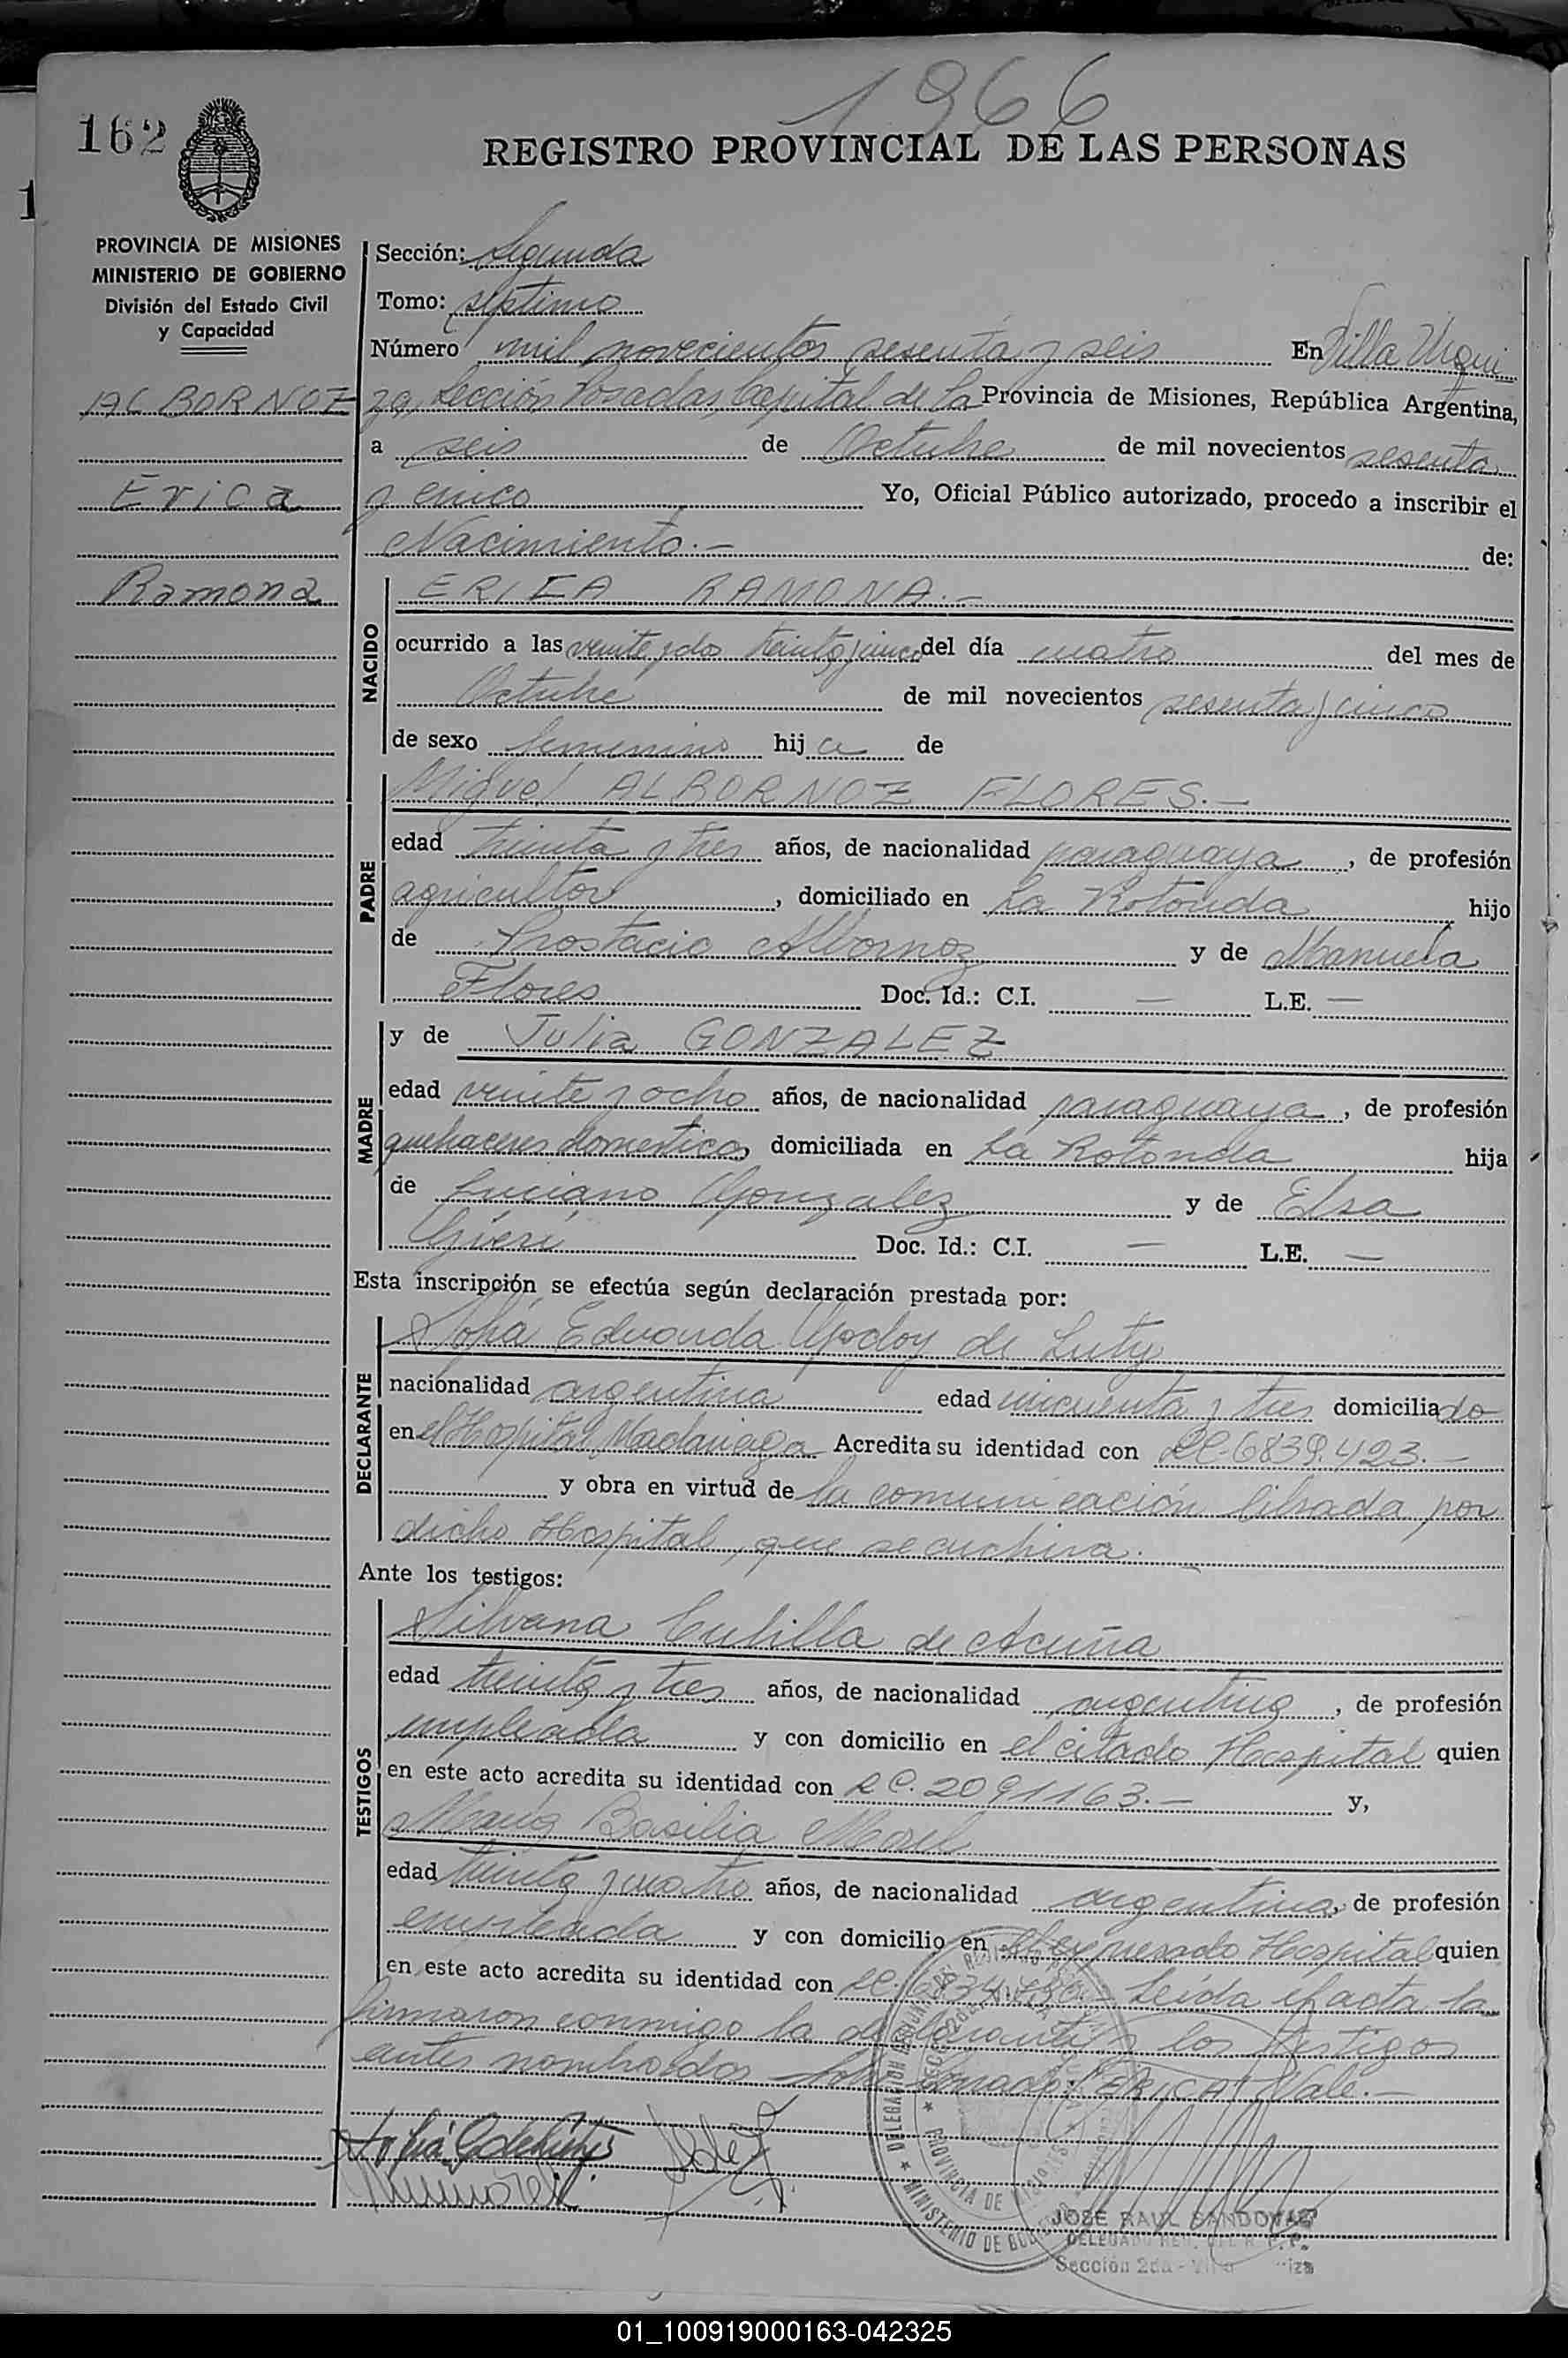 1966
162
REGISTRO PROVINCIAL DE LAS PERSONAS
PROVINCIA DE MISIONES
MINISTERIO DE GOBIERNO
División del Estado Civil
y Capacidad
ALBORNOZ
Erica
Ramona
Sección: Segunda
Tomo: septimo
Número mil novecientos sesenta y seis En Villa Urqui
za, Sección Posadas, Capital de la Provincia de Misiones, República Argentina,
a seis de Octubre de mil novecientos sesenta
y cinco Yo, Oficial Público autorizado, procedo a inscribir el
Nacimiento.- de:
NACIDO
ERICA RAMONA.-
ocurrido a las veinte y dos treinta y cinco del día cuatro del mes de
Octubre de mil novecientos sesenta y cinco
de sexo femenino hija de
PADRE
Miguel ALBORNOZ FLORES.-
edad treinta y tres años, de nacionalidad paraguaya, de profesión
agricultor, domiciliado en La Rotonda hijo
de Prostacio Albornoz y de Manuela
Flores Doc. Id.: C.I. — L.E. —
MADRE
y de Julia GONZALEZ
edad veinte y ocho años, de nacionalidad paraguaya, de profesión
quehaceres domesticos domiciliada en La Rotonda hija
de Luciano Gonzalez y de Elsa
Doc. Id.: C.I. — L.E. —
Esta inscripción se efectúa según declaración prestada por:
DECLARANTE
Sofia Eduarda Godoy de Luty
nacionalidad argentina edad cincuenta y tres domiciliado
en el Hospital Madariaga Acredita su identidad con LC. 6839.423.-
y obra en virtud de la comunicación librada por
dicho Hospital, que se archiva.
Ante los testigos:
TESTIGOS
Silvana Cubilla de Acuña
edad treinta y tres años, de nacionalidad argentina, de profesión
empleada y con domicilio en el citado Hospital quien
en este acto acredita su identidad con LC. 2091163.- y,
María Basilia Morel
edad treinta y cuatro años, de nacionalidad argentina, de profesión
empleada y con domicilio en el expresado Hospital quien
en este acto acredita su identidad con LC. Leída el acta la
firmaron conmigo la declarante y los testigos
antes nombrados "ERICA" Vale.-
JOSE RAUL SANDOVAL
DELEGADO
Sección 2da -
MINISTERIO DE GOBIERNO
PROVINCIA DE MISIONES
01_100919000163-042325